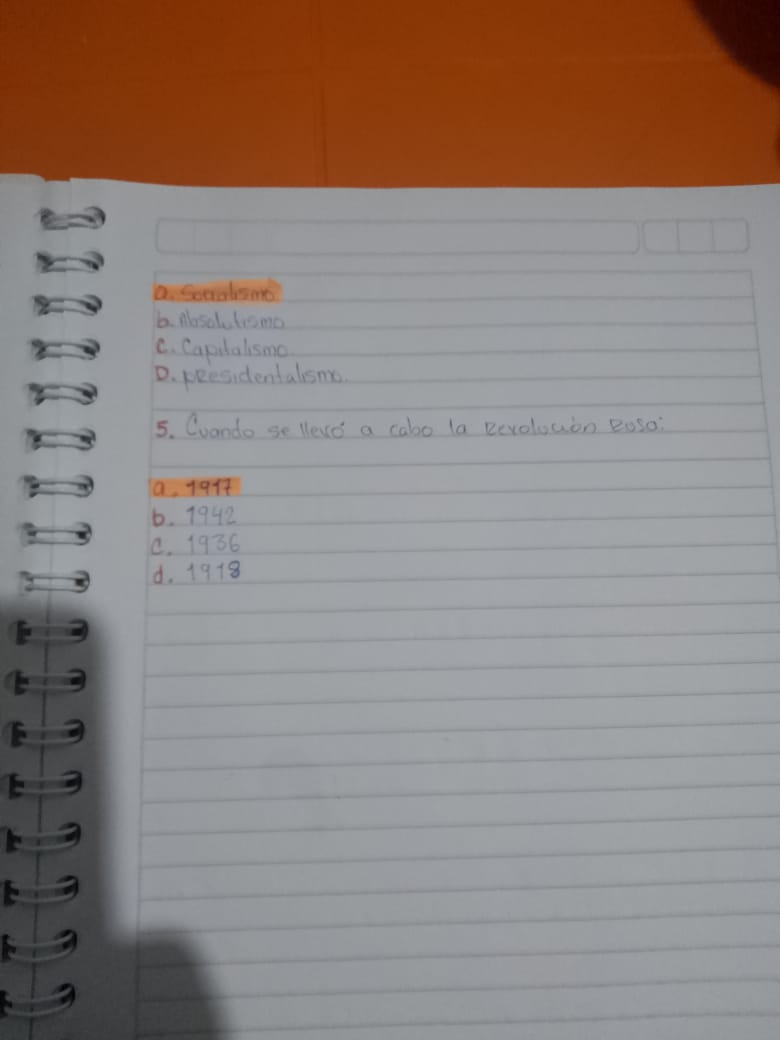 a. Socialismo
b. Absolutismo
c. Capitalismo
D. presidentalismo.
5. Cuando se llevó a cabo la Revolución Rusa:
a. 1917
b. 1942
c. 1936
d. 1918